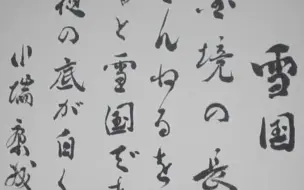 雪国
国境の長
とんねるを
と雪国で
夜の底が白く
川端康成